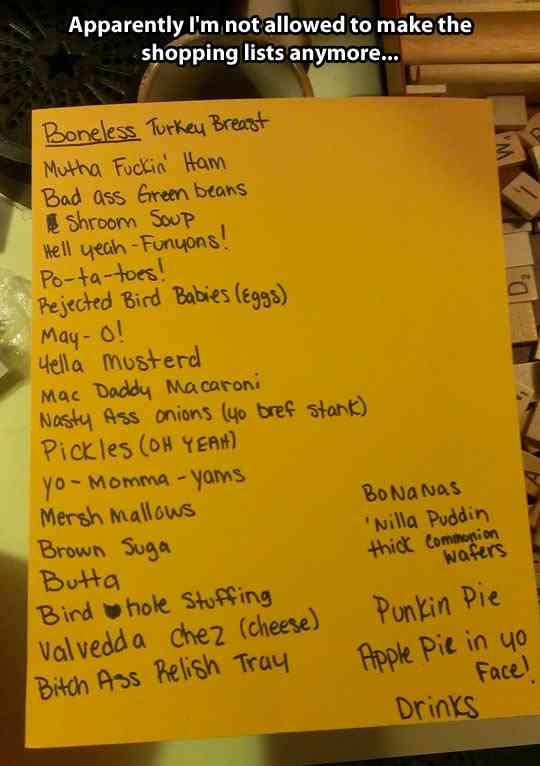 Apparently I'm not allowed to make the
shopping lists anymore...
Boneless Turkey Breast
Mutha Fuckin' Ham
Bad ass Green beans
Shroom Soup
Hell yeah - Funyons!
Po-ta-toes!
Rejected Bird Babies (Eggs)
May- O!
Yella Musterd
Mac Daddy Macaroni
Nasty Ass onions (yo bref stank)
Pickles (OH YEAH)
Yo-Momma-yams
Mersh Mallows
Brown Suga
Butta
Bird hole Stuffing
Valvedda Chez (cheese)
Bitch Ass Relish Tray
BoNaNas
'Nilla Puddin
thick Communion
Wafers
Punkin Pie
Apple Pie in yo
Face!
Drinks
W
1
D2